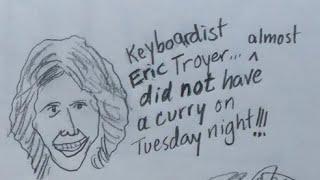 Keyboardist
Eric Troyer... almost
did not ^ have
a curry on
Tuesday night!!!